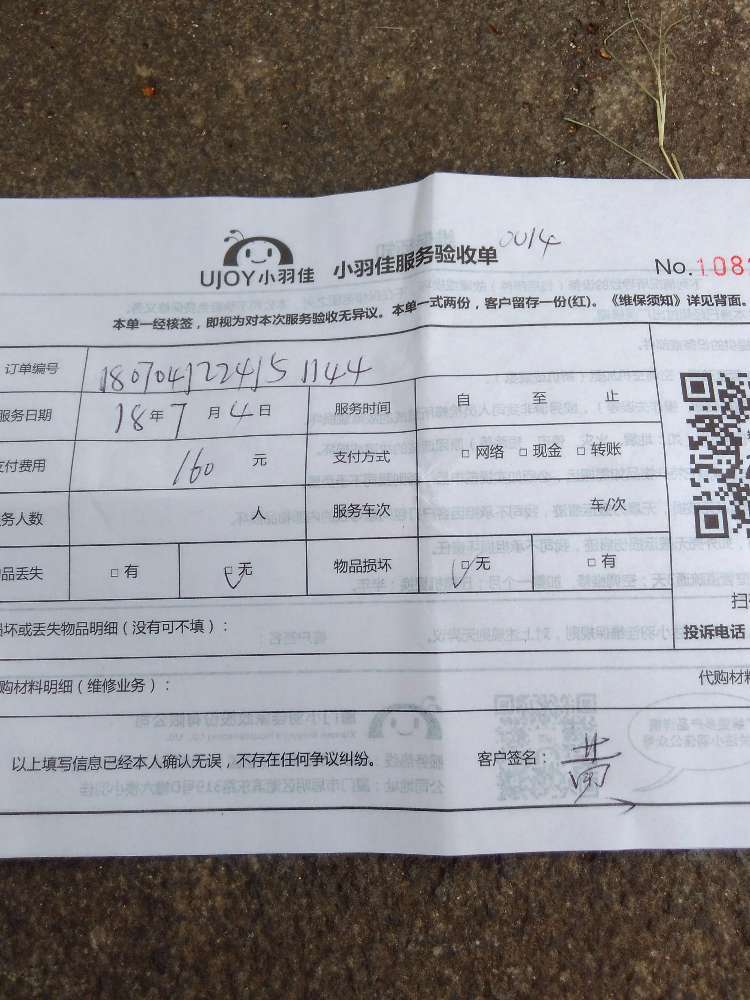 UJOY小羽佳 小羽佳服务验收单 0014
No.108
本单一经核签，即视为对本次服务验收无异议。本单一式两份，客户留存一份(红)。《维保须知》详见背面。
订单编号 180704122415 1144
服务日期 18年7月4日 服务时间 自 至 止
支付费用 160 元 支付方式 □网络 □现金 □转账
务人数 人 服务车次 车/次
品丢失 □有 □无 物品损坏 □无 □有
损坏或丢失物品明细（没有可不填）：
投诉电话
购材料明细（维修业务）： 代购材料
以上填写信息已经本人确认无误，不存在任何争议纠纷。 客户签名：